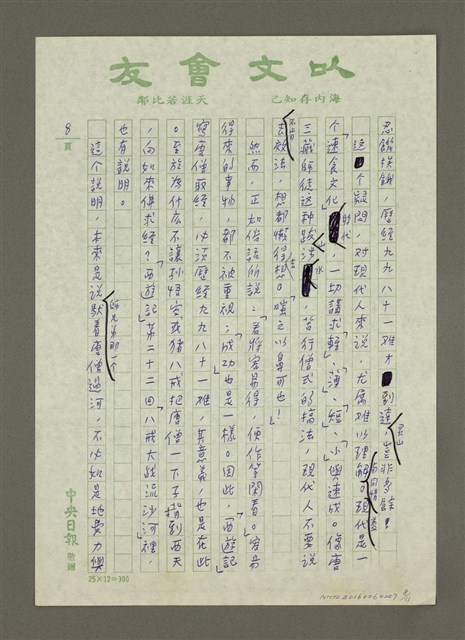 以文會友
海內存知己
天涯若比鄰
忍饑挨餓,歷經九九八十一難才到達靈山,豈非多餘!
這個疑問,對現代人來說,尤屬难以理解。現代是一
個速食文化時代,一切講求「輕」、「薄」、「短」、「小」與速成。像唐
三藏師徒這种跋山涉水,苦行僧式的搞法,現代人不要說
去效法,想都懶得去想。嗤之以鼻可也!
然而,正如俗話所說:「若將容易得,便作等閑看。」容易
得來的事物,都不被重視;成功也是一樣。因此,「西遊記」
寫唐僧取經,必須歷經九九八十一难,其意義,也是在此
。至於為什麼不讓孫悟空或豬八戒把唐僧一下子揹到西天
,向如來佛求經?「西遊記」第二十二回「八戒大戰流沙河」裡,
也有說明。
這個說明,本來是說馱着唐僧過河,不必如是地費力與
8
頁
中央日報
敬贈
25×12=300
NMTL20160060007